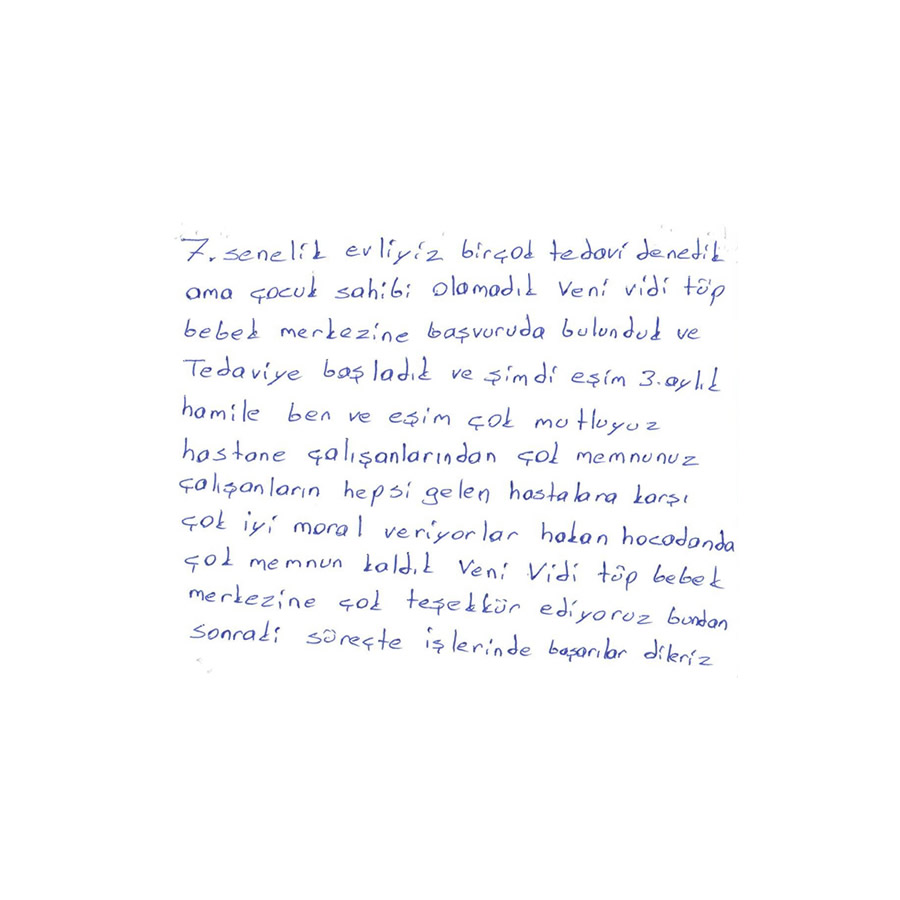 7. senelik evliyiz birçok tedavi denedik
ama çocuk sahibi olamadık Veni vidi tüp
bebek merkezine başvuruda bulunduk ve
Tedaviye başladık ve şimdi eşim 3. aylık
hamile ben ve eşim çok mutluyuz
hastane çalışanlarından çok memnunuz
çalışanların hepsi gelen hastalara karşı
çok iyi moral veriyorlar hakan hocadanda
çok memnun kaldık Veni Vidi tüp bebek
merkezine çok teşekkür ediyoruz bundan
sonraki süreçte işlerinde başarılar dileriz